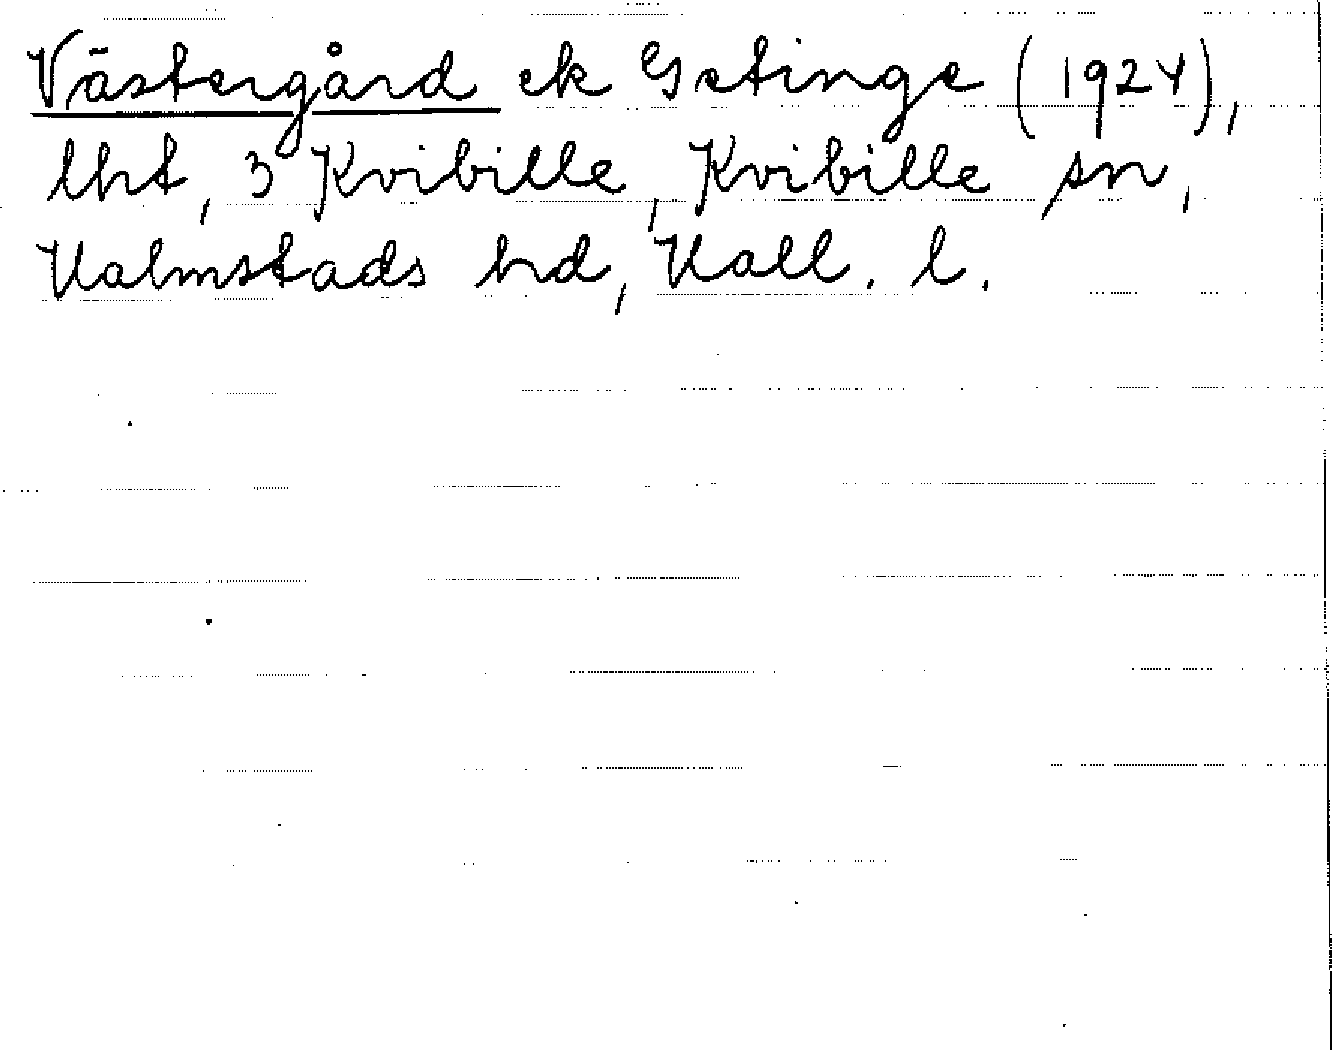 Västergård ek Getinge (1924),
lht, 3 Kvibille, Kvibille sn,
Halmstads hd, Hall. l.